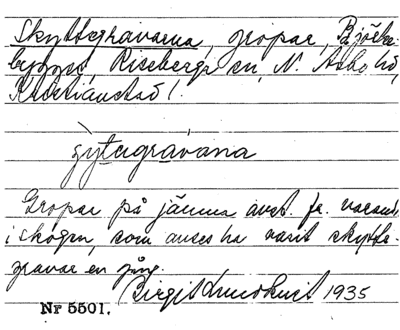 Skyttegravarna, gropar, Björke-
bygget, Riseberga sn, N. Åsbo hd,
Kristianstad l.
şy̆tagravana
Gropar på jämna avst. fr. varandra
i skogen, som anses ha varit skytte-
gravar en gång.
Birgit Lundkvist 1935
Nr 5501.